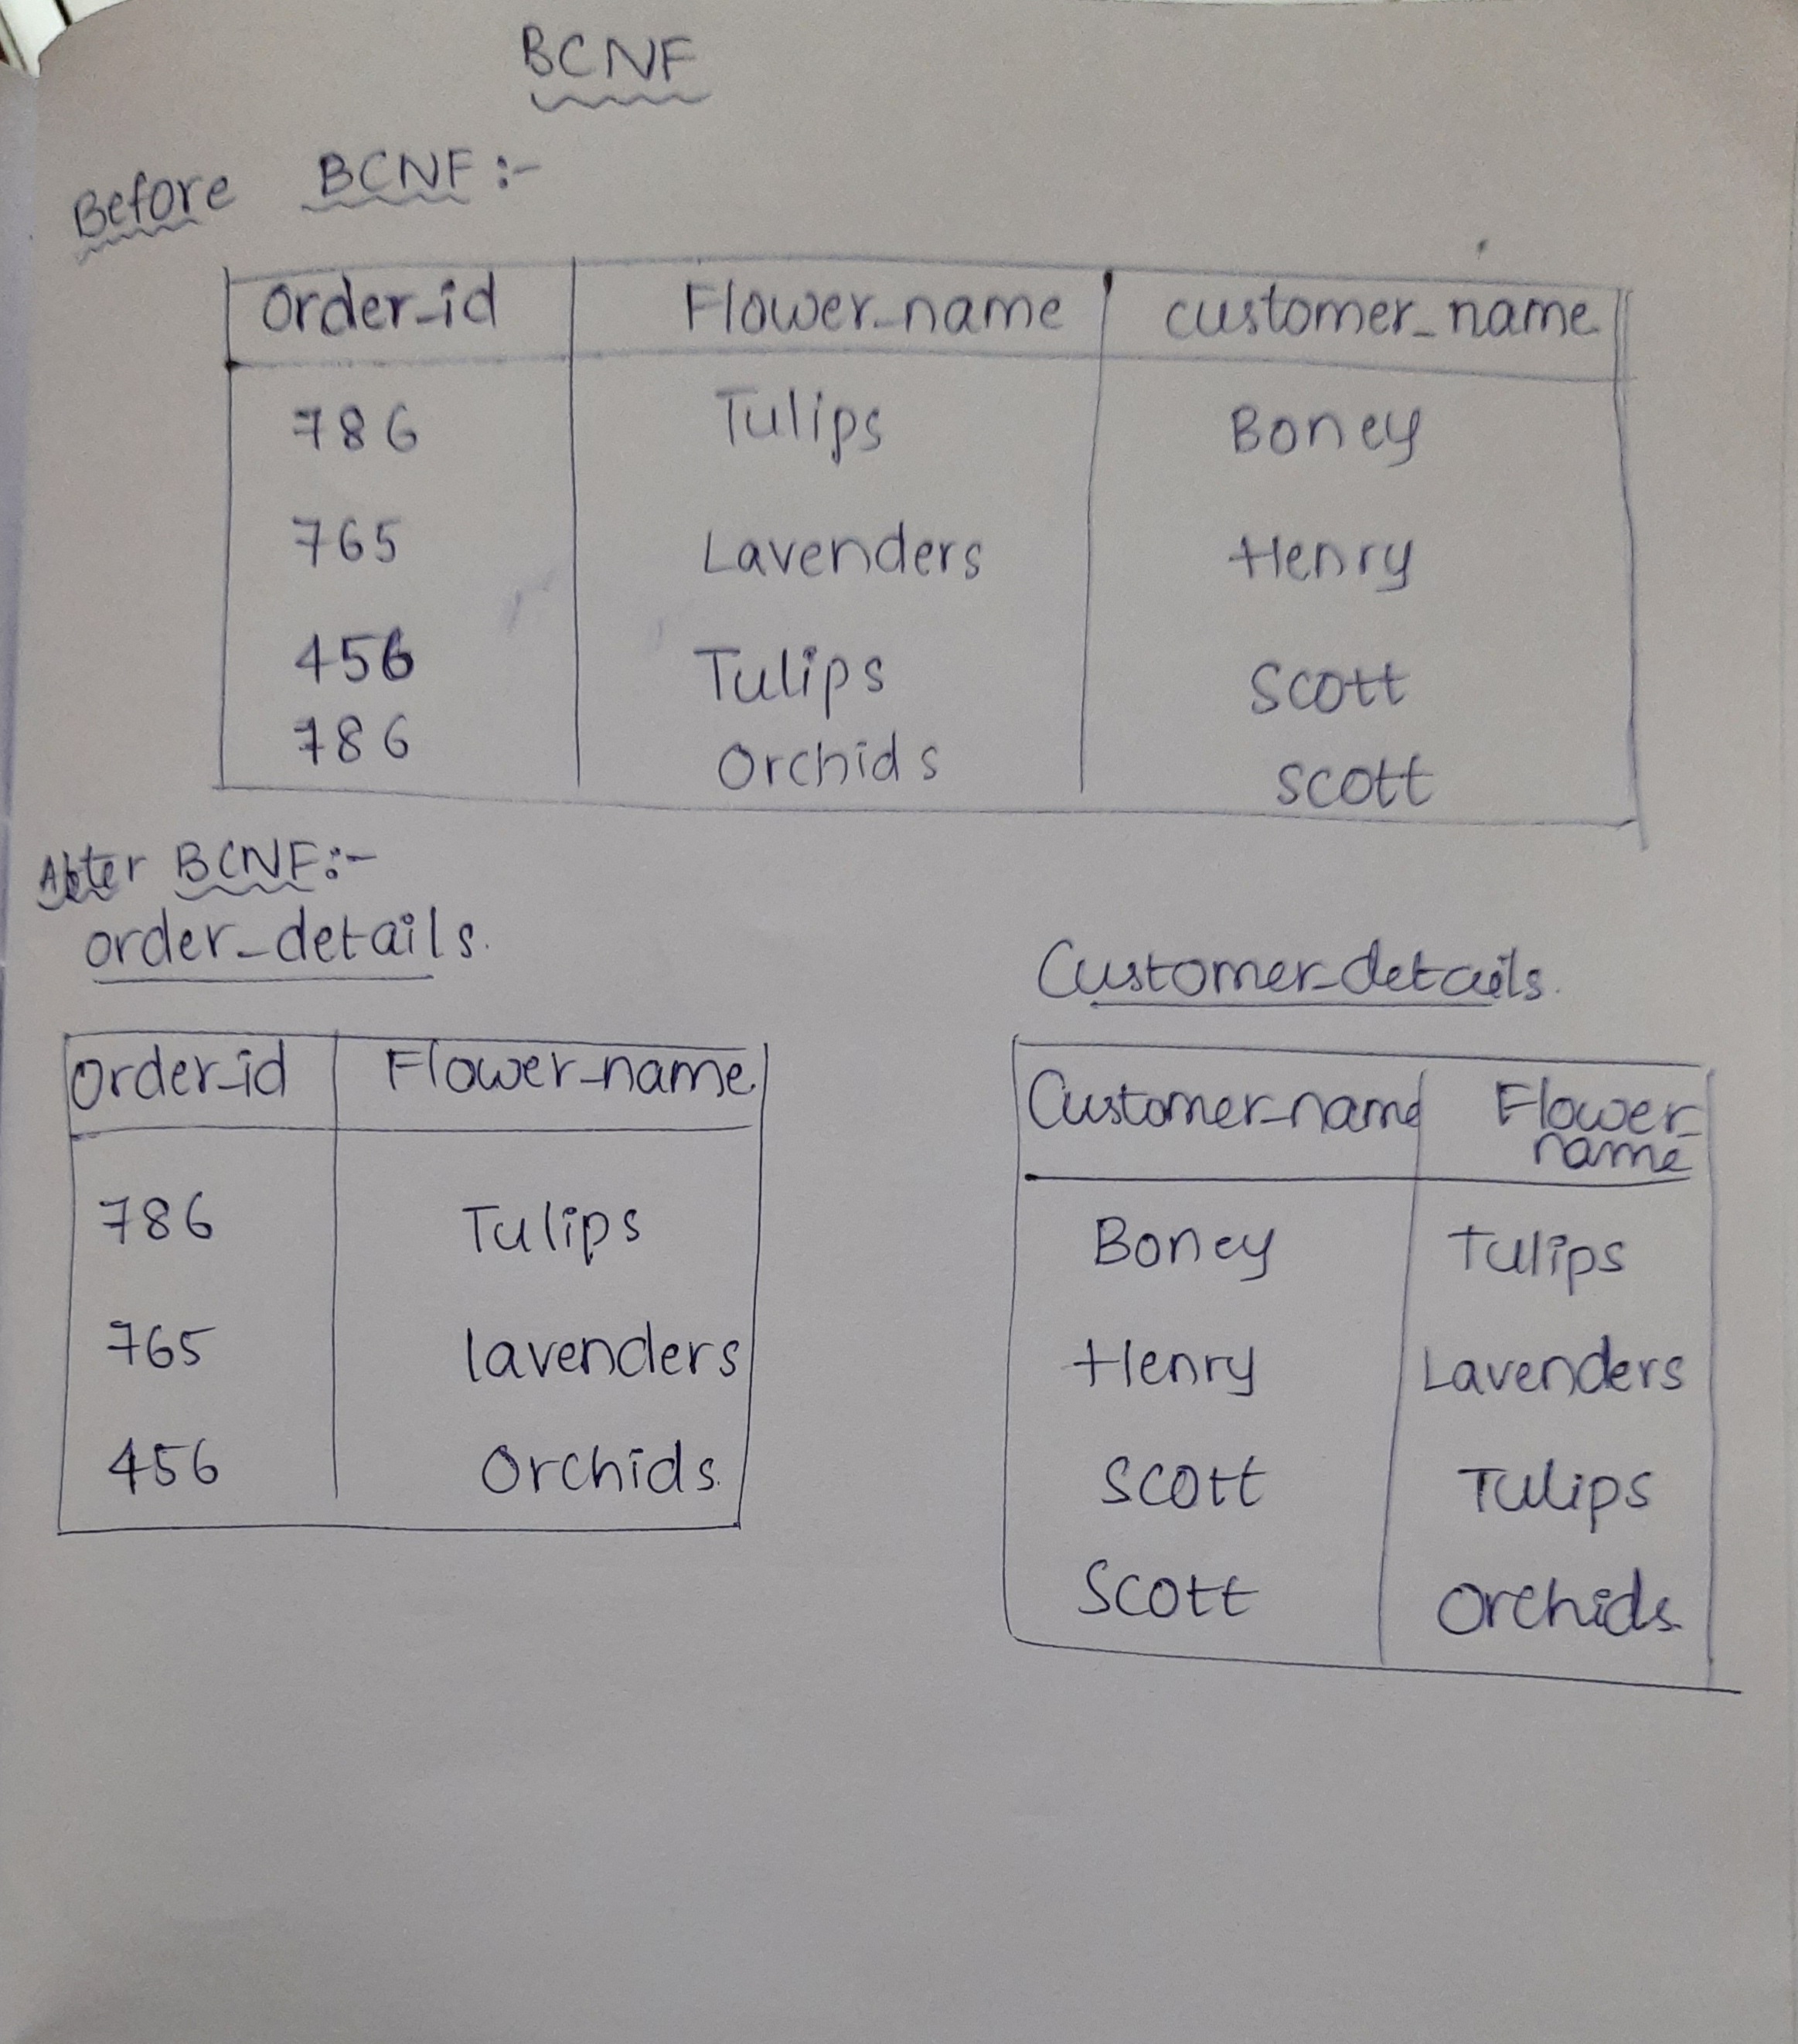 BCNF
Before BCNF:-
Order_id Flower_name customer_name
786 Tulips Boney
765 Lavenders Henry
456 Tulips Scott
786 Orchids Scott
After BCNF:-
order_details.
Order_id Flower_name
786 Tulips
765 lavenders
456 Orchids.
Customer_details.
Customer_name Flower_
name
Boney Tulips
Henry Lavenders
Scott Tulips
Scott Orchids.